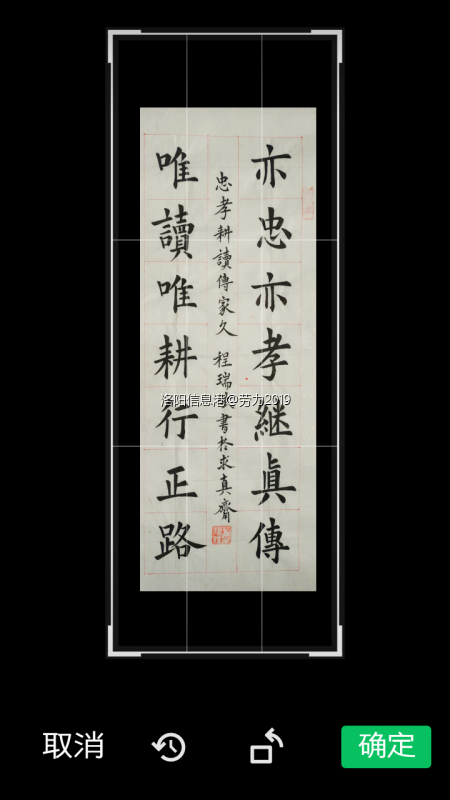 亦忠亦孝継眞傳
忠孝耕讀傳家久 程瑞 書於求真齋
唯讀唯耕行正路
洛阳信息港@劳力2019
取消
确定